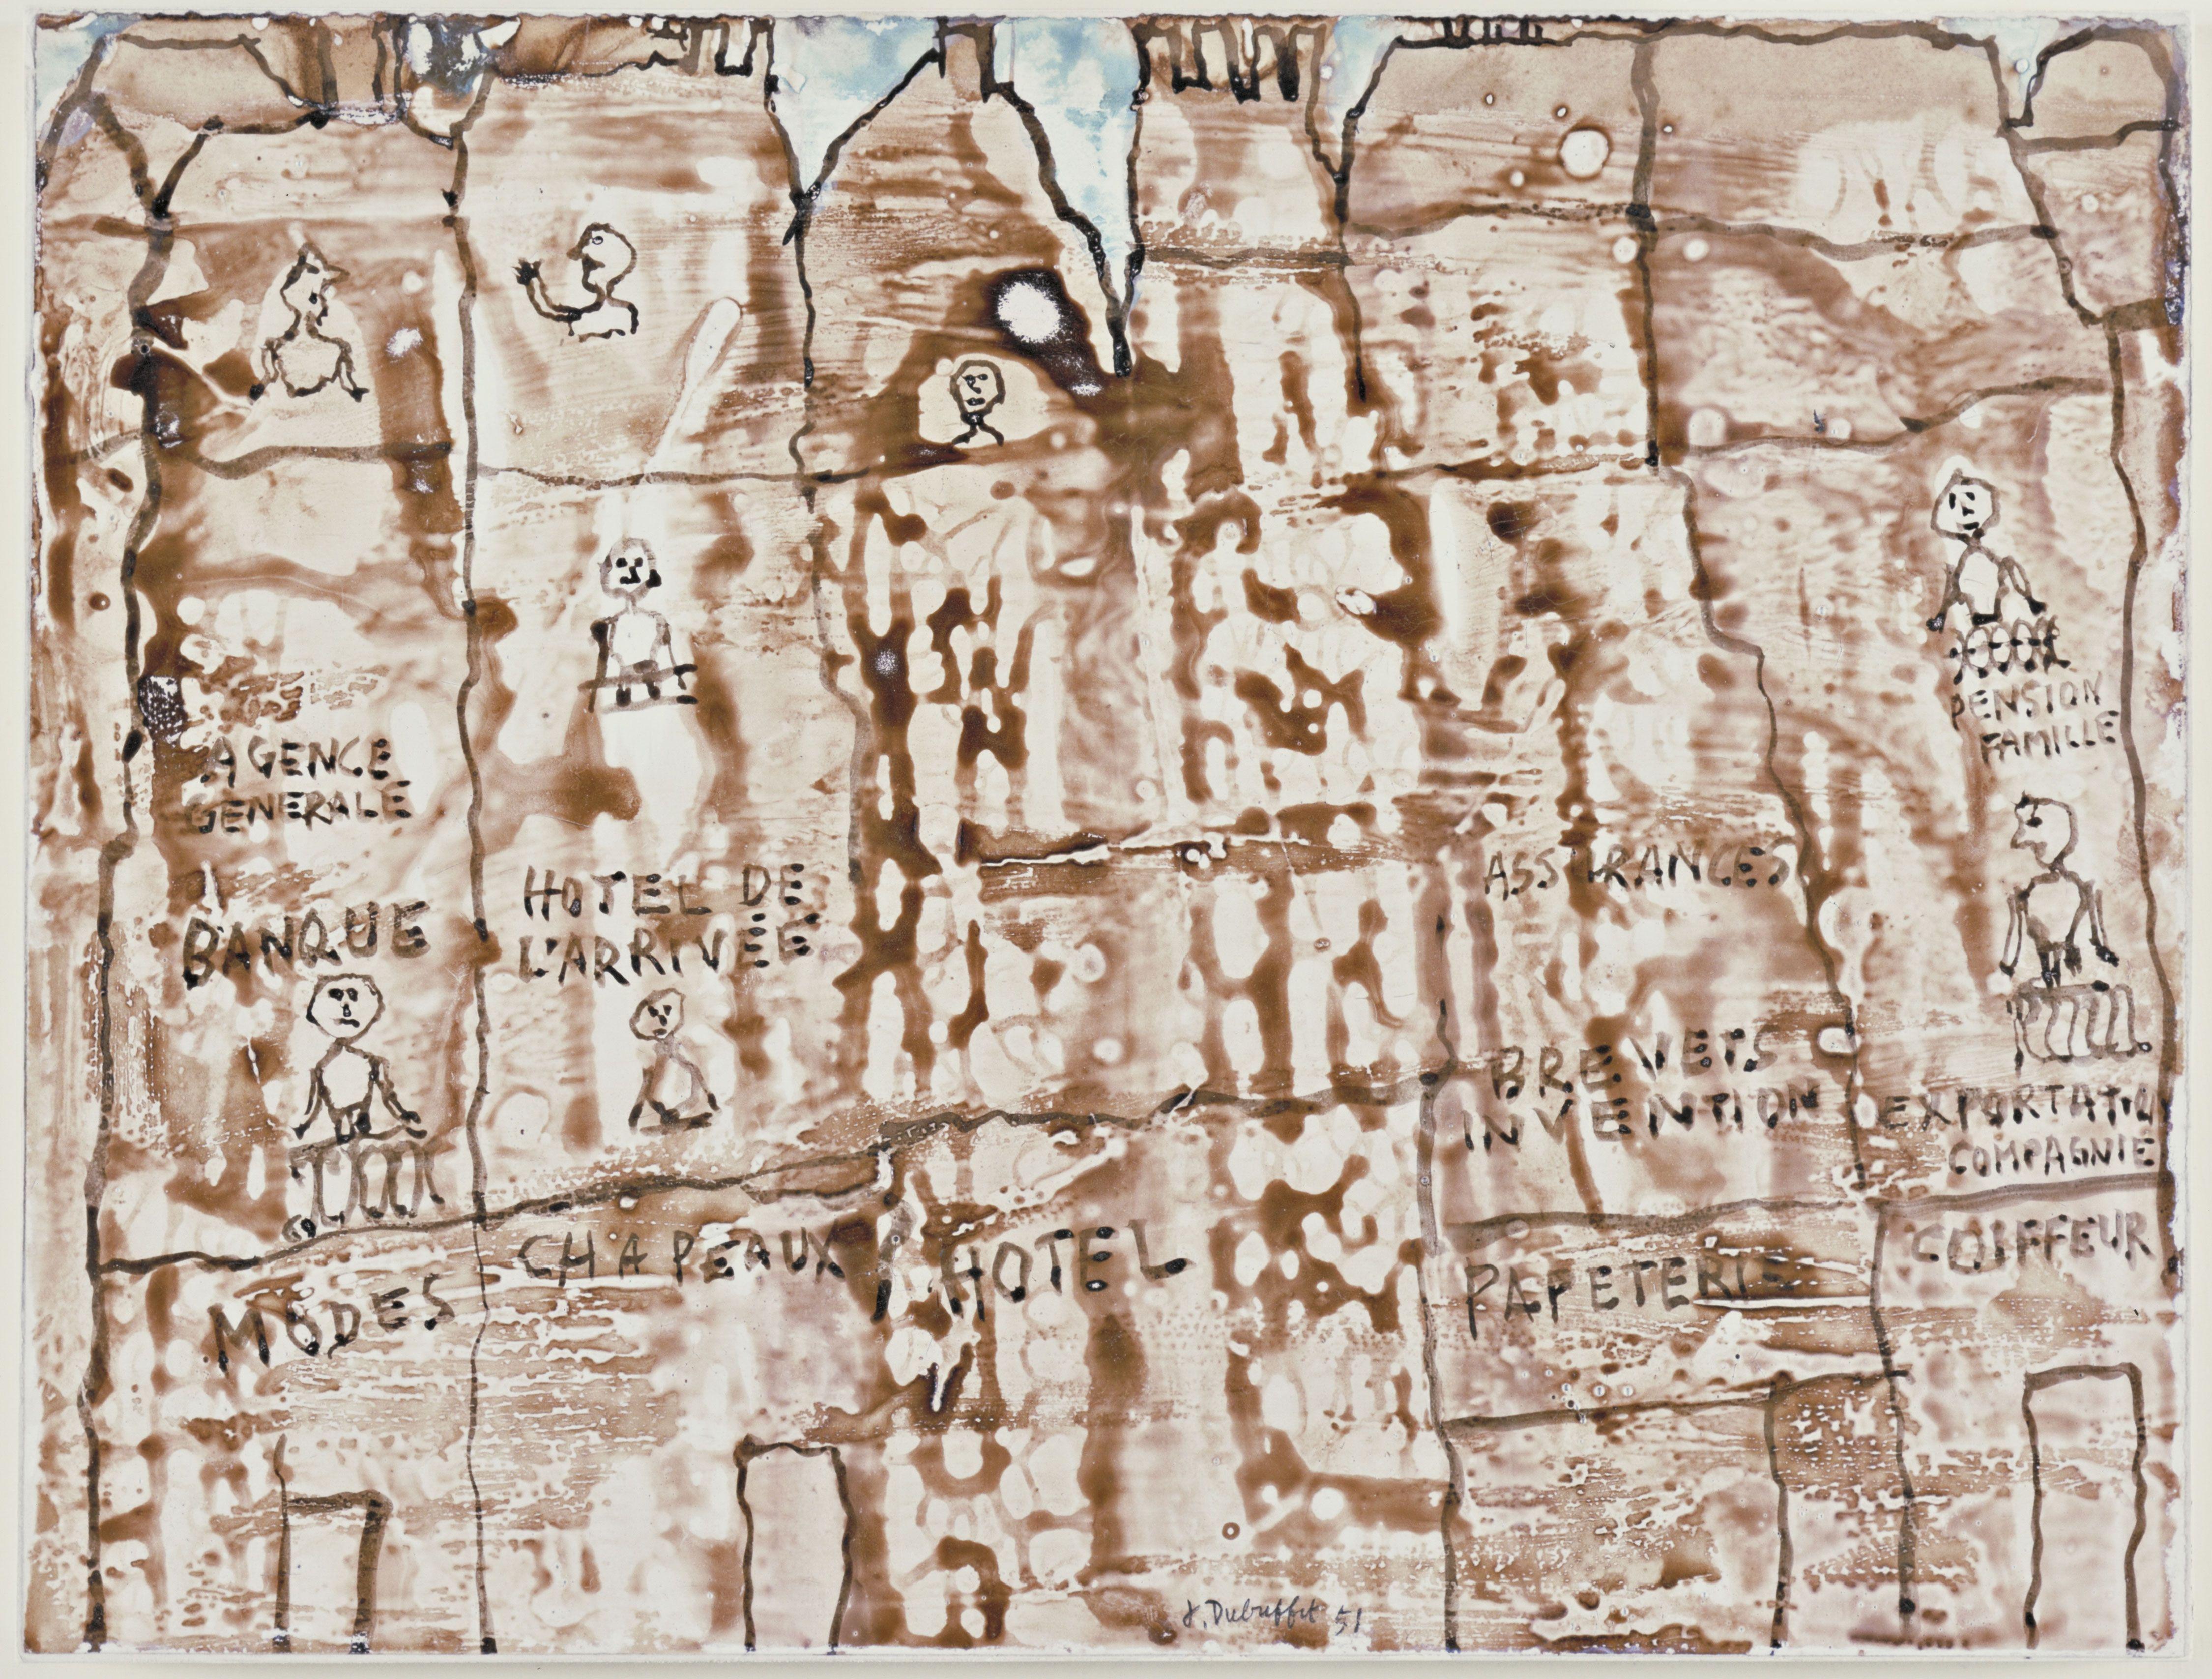 AGENCE
GENERALE
BANQUE
HOTEL DE
L'ARRIVÉE
PENSION
FAMILLE
ASSURANCES
BREVETS
INVENTION
EXPORTATIO
COMPAGNIE
MODES
CHAPEAUX
HOTEL
PAPETERIE
COIFFEUR
J. Dubuffet 51